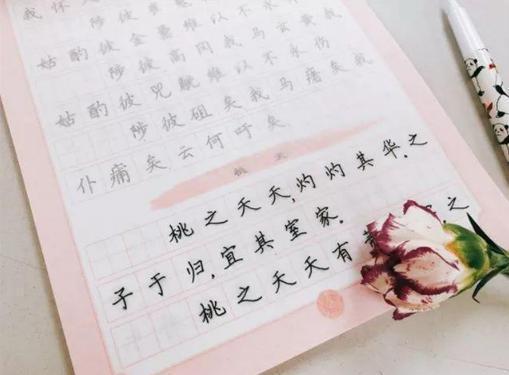 姑酌彼金罍维以不永
陟彼高冈我马玄黄我
姑酌彼兕觥维以不永伤
陟彼砠矣我马瘏矣我
仆痡矣云何吁矣
桃夭
桃之夭夭,灼灼其华.之
子于归,宜其室家.
桃之夭夭有 之